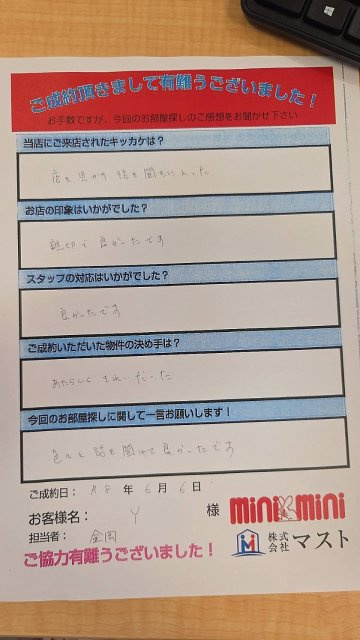 ご成約頂きまして有難うございました！
お手数ですが、今回のお部屋探しのご感想をお聞かせ下さい
当店にご来店されたキッカケは？
店を見かけ 話を聞きに入った
お店の印象はいかがでした？
親切で良かったです
スタッフの対応はいかがでした？
良かったです
ご成約いただいた物件の決め手は？
あたらしく きれいだった
今回のお部屋探しに関して一言お願いします！
色々と話を聞けて良かったです
ご成約日： R8 年 6 月 6 日
お客様名： Y 様
担当者：
ご協力有難うございました！
mini mini
株式会社 マスト